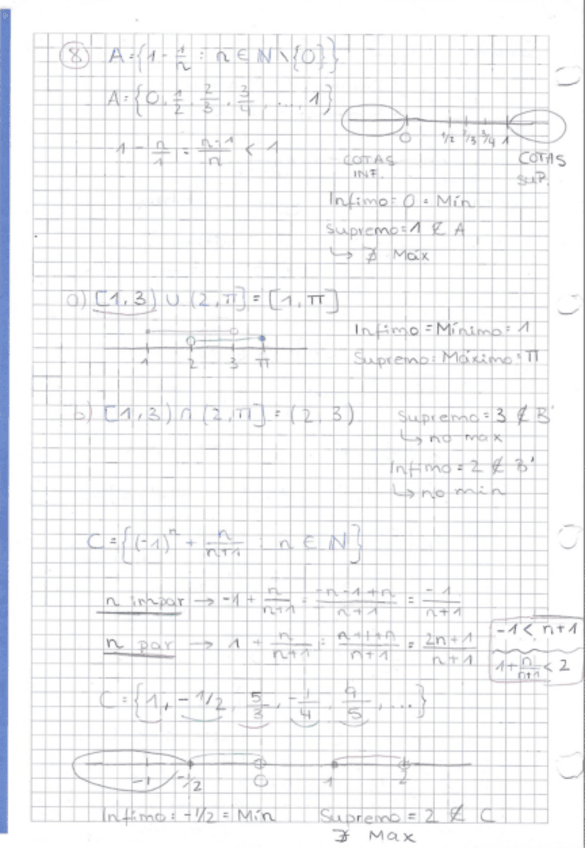 ⑧ A={1-1/n : n ∈ N\{0}}
A={0, 1/2, 2/3, 3/4, ..., 1}
0 1/2 2/3 3/4 1
1 - n/1 = n-1/n < 1
COTAS INF.
COTAS SUP.
Infimo = 0 = Mín
Supremo = 1 ∉ A
↳ ∄ Máx
a) [1,3) ∪ (2,π] = [1,π]
1 2 3 π
Infimo = Mínimo = 1
Supremo = Máximo = π
b) [1,3) ∩ (2,π] = (2,3)
Supremo = 3 ∉ B'
↳ no max
Infimo = 2 ∉ B'
↳ no min
C={(-1)^n + n/n+1 : n ∈ N}
n impar → -1 + n/n+1 = -n-1+n/n+1 = -1/n+1
n par → 1 + n/n+1 = n+1+n/n+1 = 2n+1/n+1
-1 < n+1
1+n/n+1 < 2
C={1, -1/2, 5/3, -1/4, 9/5, ...}
-1 -1/2 0 1 2
Infimo = -1/2 = Mín Supremo = 2 ∉ C
∄ Max